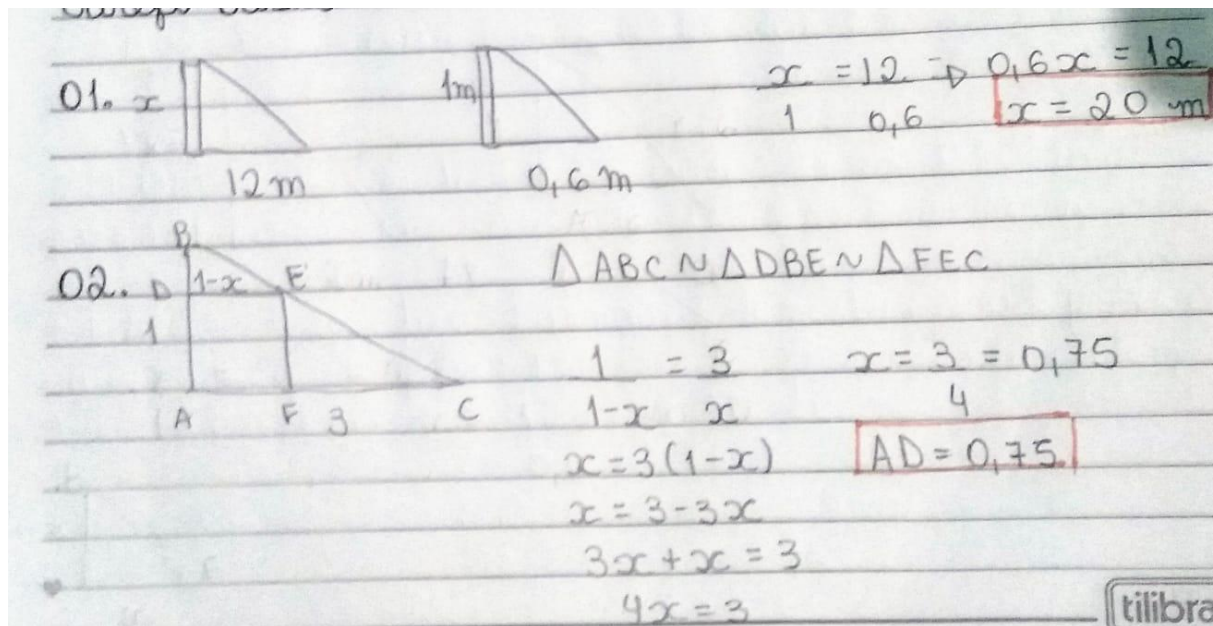 01. x
12m
1m
0,6m
x/1 = 12/0,6 ⇒ 0,6x = 12
x = 20 m
02.
B
D 1-x E
1
A F 3 C
△ABC ~ △DBE ~ △FEC
1/(1-x) = 3/x
x = 3(1-x)
x = 3-3x
3x+x = 3
4x = 3
x = 3/4 = 0,75
AD = 0,75
tilibra